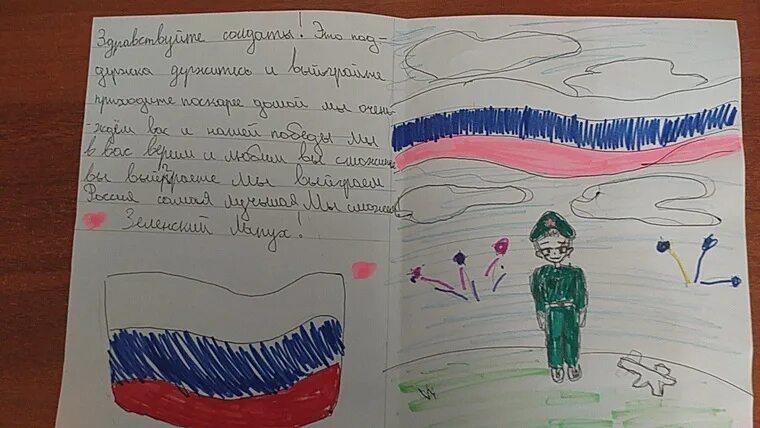 Здравствуйте солдаты! Это под-
держка держитесь и выйграйте
приходите поскарее домой мы очень
-ждём вас и нашей победы Мы
в вас верим и любим вы сможите
вы выйграете Мы выйграем
Россия самая лучшая Мы сможем
Зеленский Лапух!